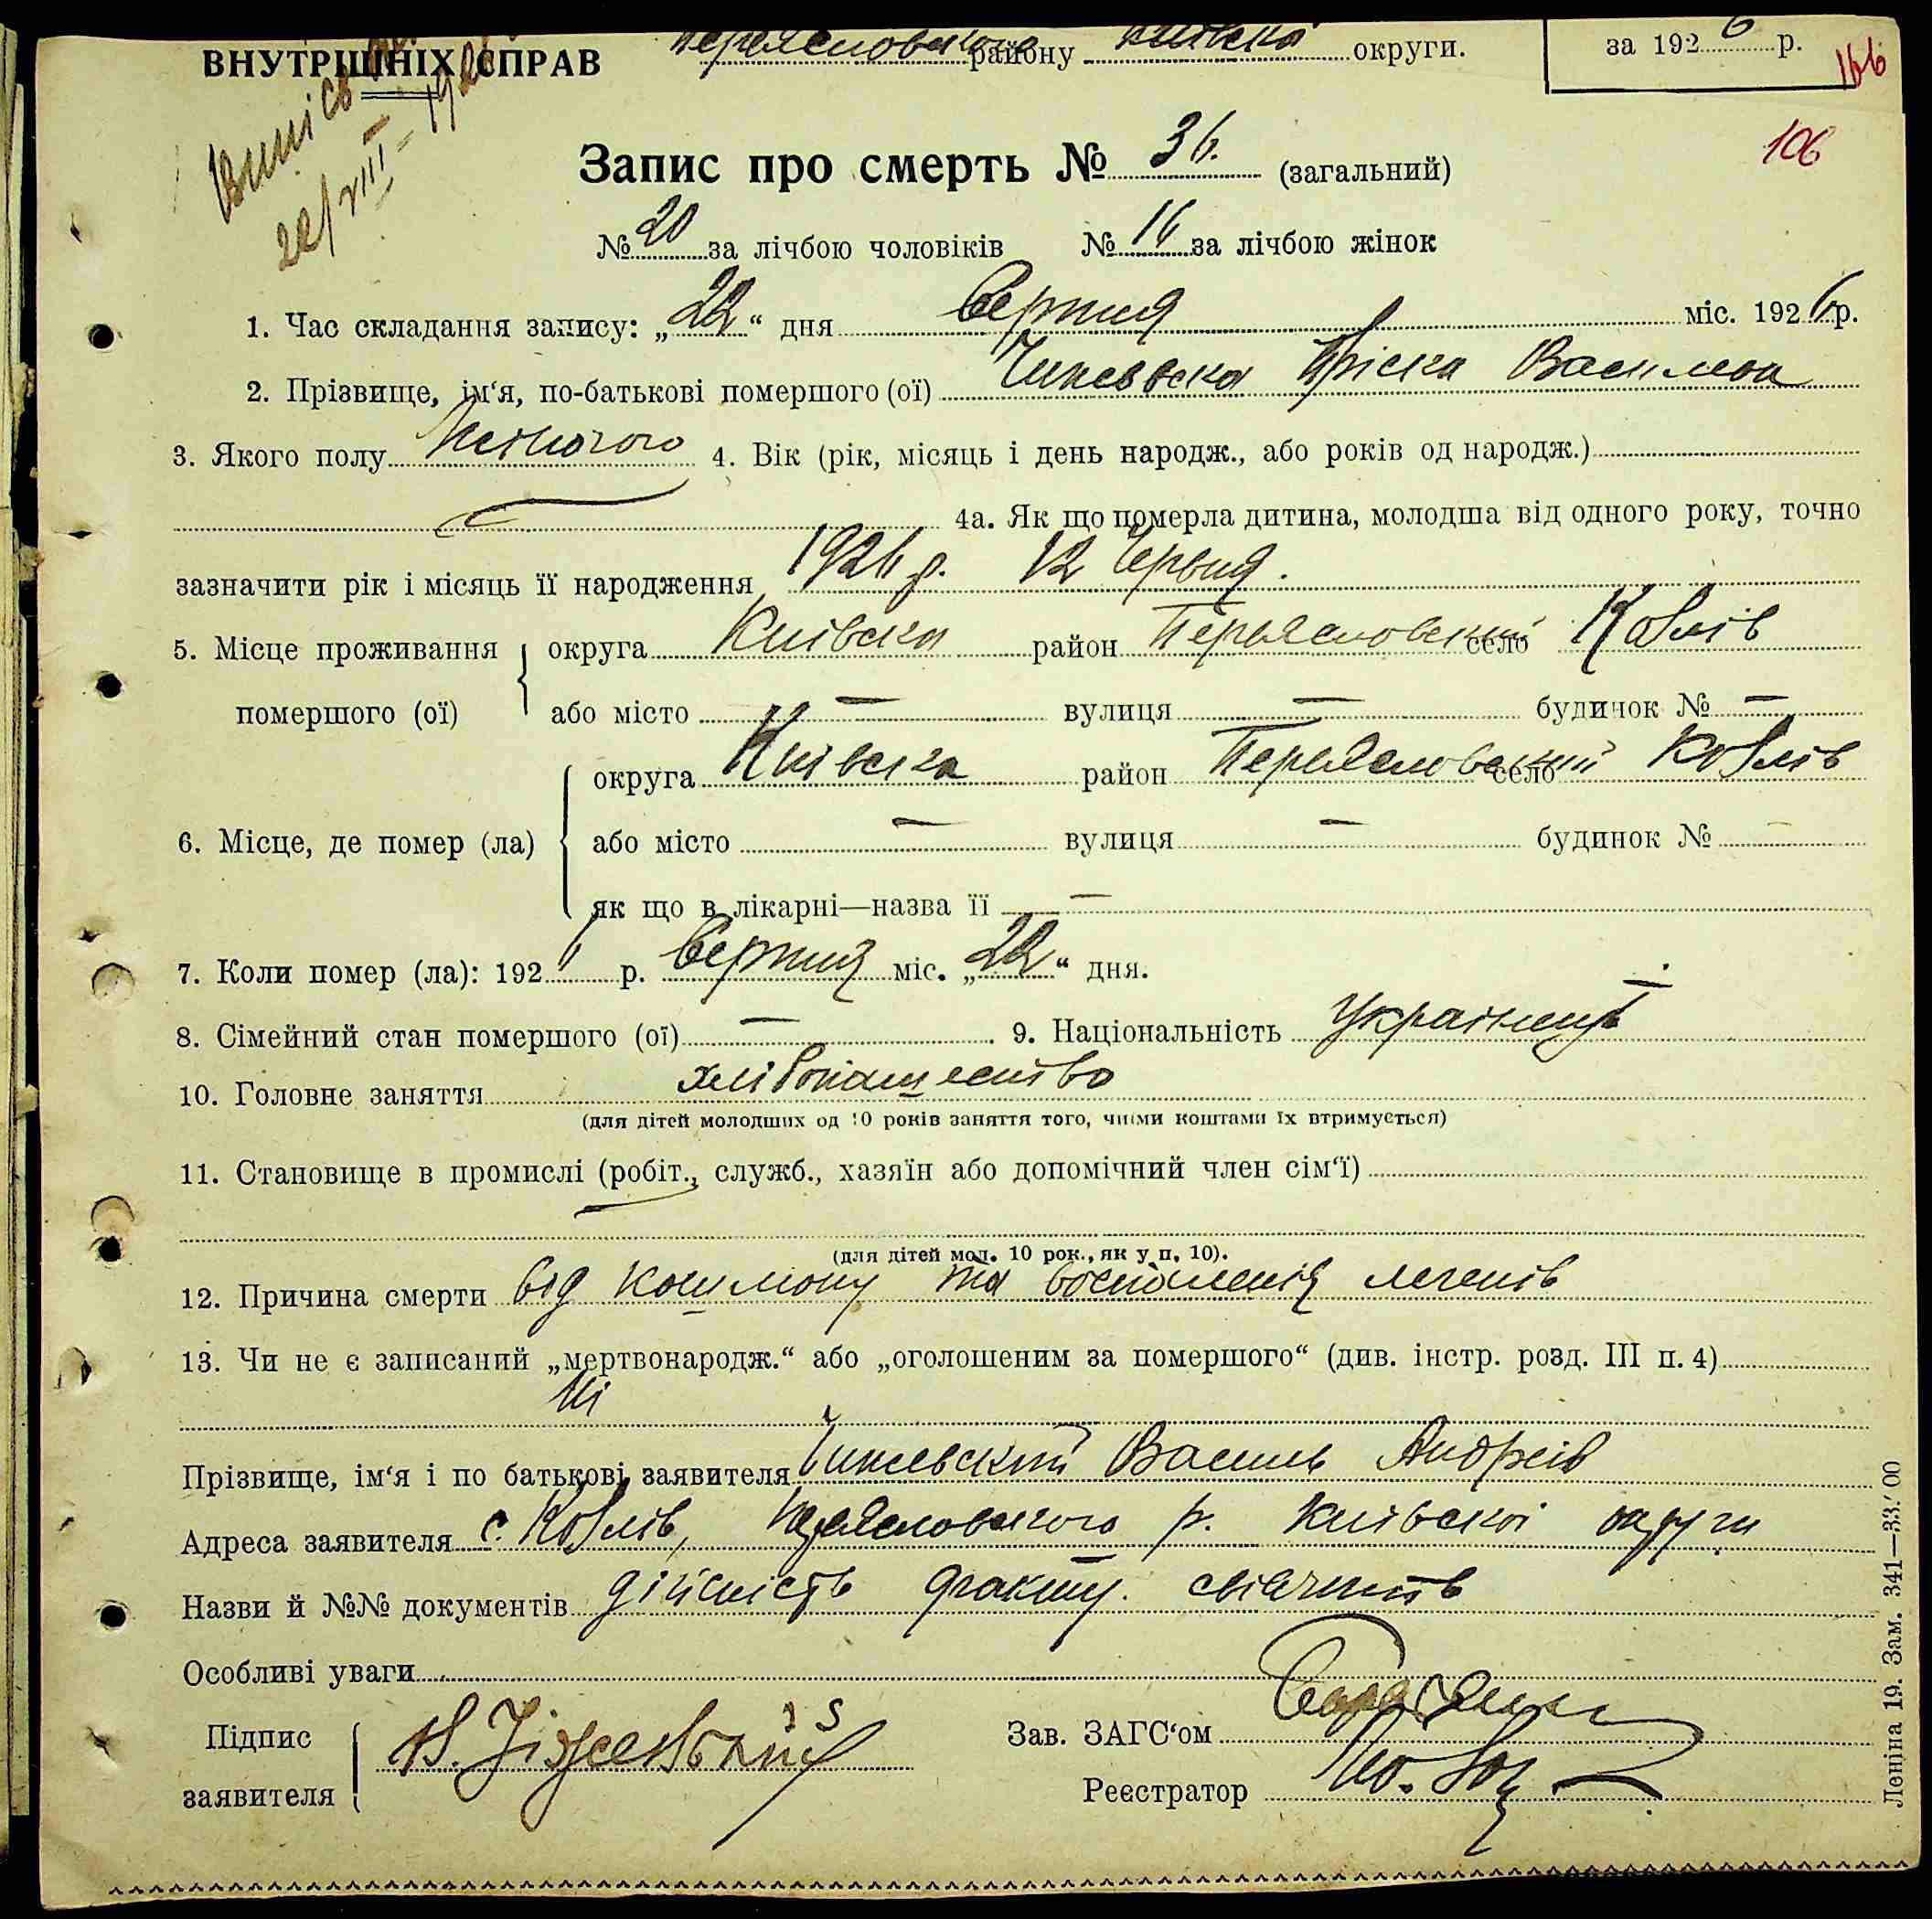 ВНУТРІШНІХ СПРАВ Переяславского району Київска округи. за 1926 р.
166
106
22/VIII - 192
Запис про смерть № 36. (загальний)
№ 20 за лічбою чоловіків № 16 за лічбою жінок
1. Час складання запису: „22“ дня Серпня міс. 1926 р.
2. Прізвище, ім‘я, по-батькові помершого (ої) Пріска Васильов
3. Якого полу Жіночого 4. Вік (рік, місяць і день народж., або років од народж.)
4а. Як що померла дитина, молодша від одного року, точно
зазначити рік і місяць її народження 1926 р. 12 Червня.
5. Місце проживання округа Київска район Переяславский село Коблів
помершого (ої) або місто — вулиця — будинок № —
округа Київска район Переяславский село Коблів
6. Місце, де помер (ла) або місто — вулиця — будинок № —
як що в лікарні—назва її —
7. Коли помер (ла): 1926 р. Серпня міс. „22“ дня.
8. Сімейний стан помершого (ої) — 9. Національність Українець
10. Головне заняття хлібопашество
(для дітей молодших од 10 років заняття того, чиїми коштами їх втримується)
11. Становище в промислі (робіт., служб., хазяїн або допомічний член сім‘ї)
(для дітей мол. 10 рок., як у п. 10).
12. Причина смерти від кошлюку та воспаленія легенів
13. Чи не є записаний „мертвонародж.“ або „оголошеним за помершого“ (див. інстр. розд. III п. 4)
Ні
Прізвище, ім‘я і по батькові заявителя Василь Андреів
Адреса заявителя с. Коблів, Переяславского р. Київскої округи
Назви й №№ документів дійсність факту. свідчить
Особливі уваги
Підпис
заявителя
Зав. ЗАГС‘ом
Реєстратор
Леніна 19. Зам. 341—33.'00